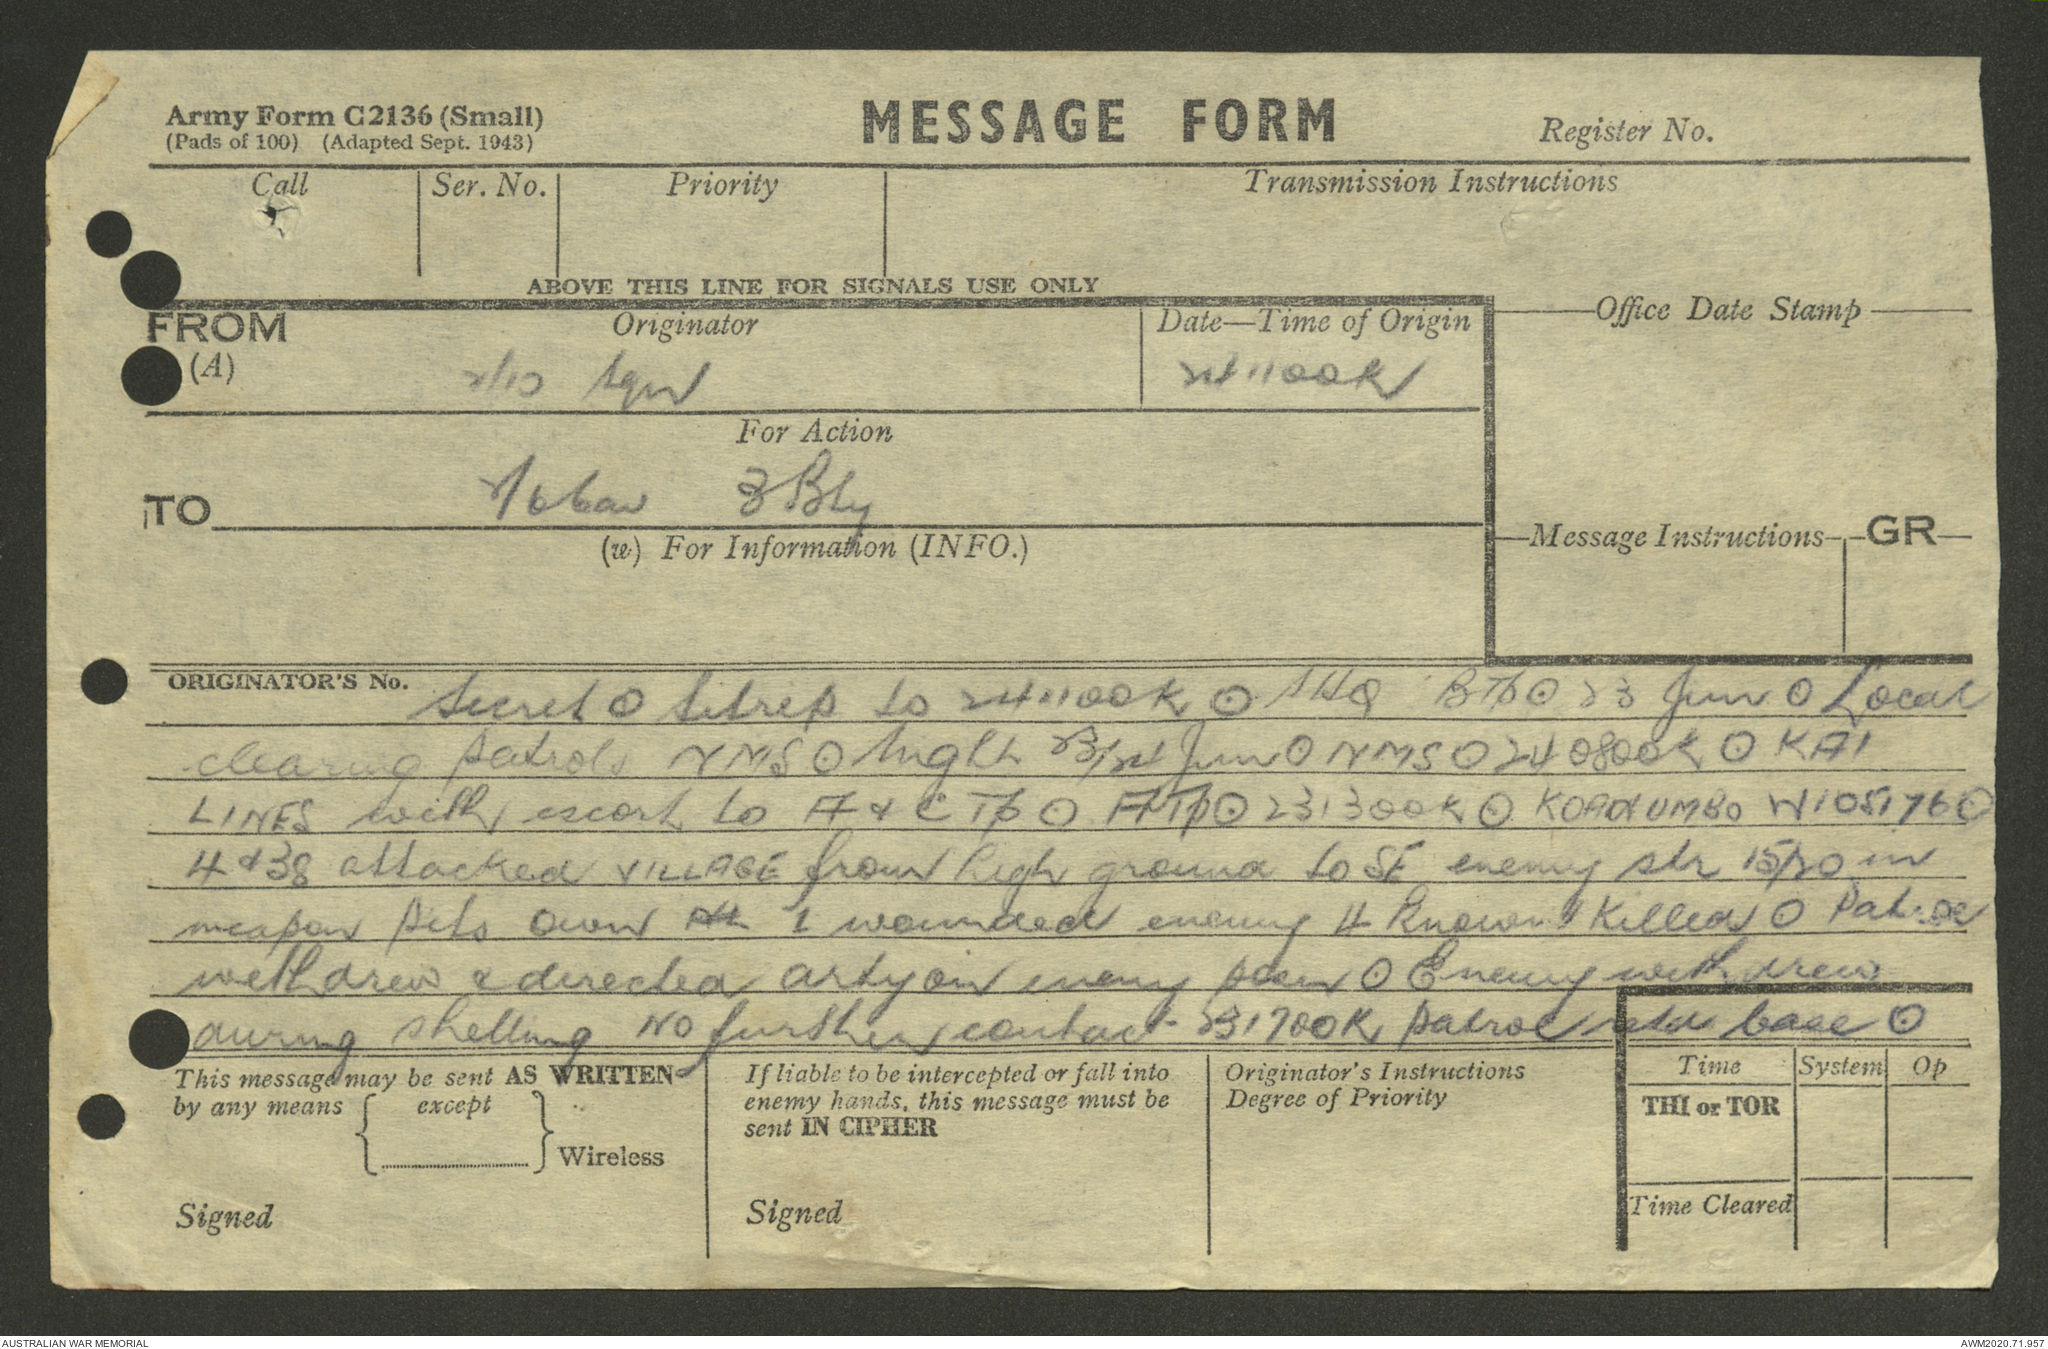 Army Form C2136 (Small)
(Pads of 100) (Adapted Sept. 1943)
MESSAGE FORM
Register No.
Call
Ser. No.
Priority
Transmission Instructions
ABOVE THIS LINE FOR SIGNALS USE ONLY
FROM
(A)
Originator
2/10 Sqn
Date—Time of Origin
241100K
Office Date Stamp
For Action
TO
2/6 Cav 3 Bty
(w) For Information (INFO.)
Message Instructions
GR
ORIGINATOR'S No.
Secret O Sitrep to 241100K O SHQ B Tp O 23 Jun O Local
clearing patrols NMS O Night 23/24 Jun O NMS O 240800K O KAI
LINES with escort to A & C Tp O A Tp O 231300K O W105176 O
4 & 38 attacked VILLAGE from high ground to SE enemy str 15/20 in
weapon pits own 1 wounded enemy 4 known killed O Patrol
withdrew & directed arty on enemy posn O Enemy withdrew
during shelling NO further contact 231700K patrol rtd base O
This message may be sent AS WRITTEN
by any means
except
Wireless
Signed
If liable to be intercepted or fall into
enemy hands, this message must be
sent IN CIPHER
Signed
Originator's Instructions
Degree of Priority
Time
System
Op
THI or TOR
Time Cleared
AUSTRALIAN WAR MEMORIAL
AWM2020.71.957